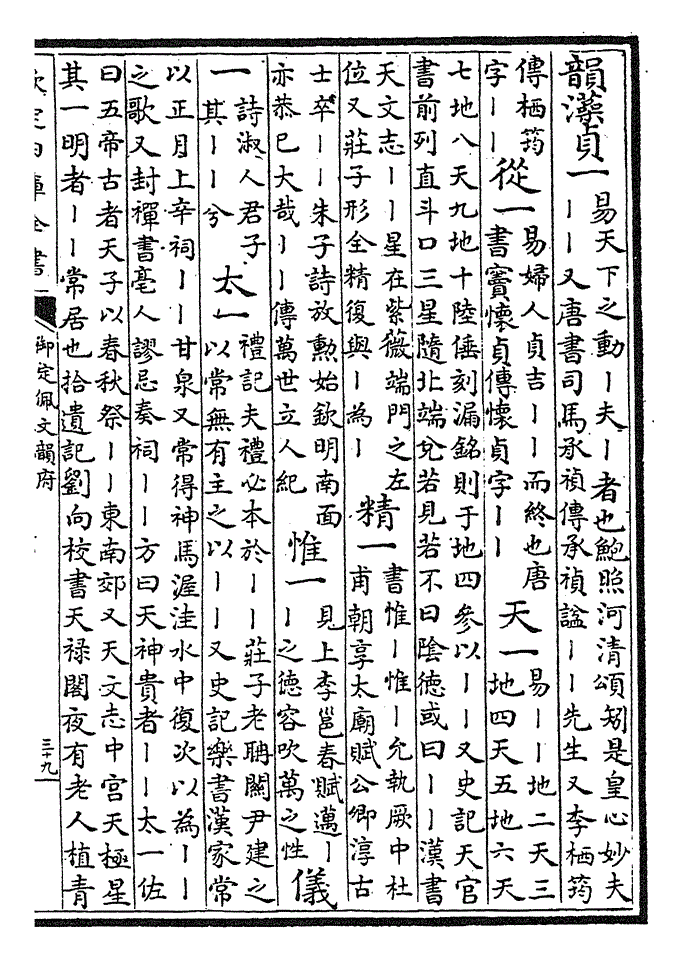 韻藻貞一易天下之動丨夫丨者也鮑照河清頌矧是皇心妙夫丨丨又唐書司馬承禎傳承禎諡丨丨先生又李栖筠
傳栖筠字丨丨從一易婦人貞吉丨丨而終也唐書竇懷貞傳懷貞字丨丨天一易丨丨地二天三地四天五地六天
七地八天九地十陸倕刻漏銘則于地四參以丨丨又史記天官書前列直斗口三星隨北端兊若見若不曰陰德或曰丨丨漢書
天文志丨丨星在紫薇端門之左位又莊子形全精復與丨為丨精一書惟丨惟丨允執厥中杜甫朝享太廟賦公卿淳古
士卒丨丨朱子詩放勲始欽明南面亦恭巳大哉丨丨傳萬世立人紀惟一見上李邕春賦邁丨丨之德容吹萬之性儀
一詩淑人君子其丨丨兮太一禮記夫禮必本於丨丨莊子老聃關尹建之以常無有主之以丨丨又史記樂書漢家常
以正月上辛祠丨丨甘泉又常得神馬渥洼水中復次以為丨丨之歌又封禪書亳人謬忌奏祠丨丨方曰天神貴者丨丨太一佐
曰五帝古者天子以春秋祭丨丨東南郊又天文志中宮天極星其一明者丨丨常居也拾遺記劉向校書天禄閣夜有老人植青
欽定四庫全書
御定佩文韻府
三十九